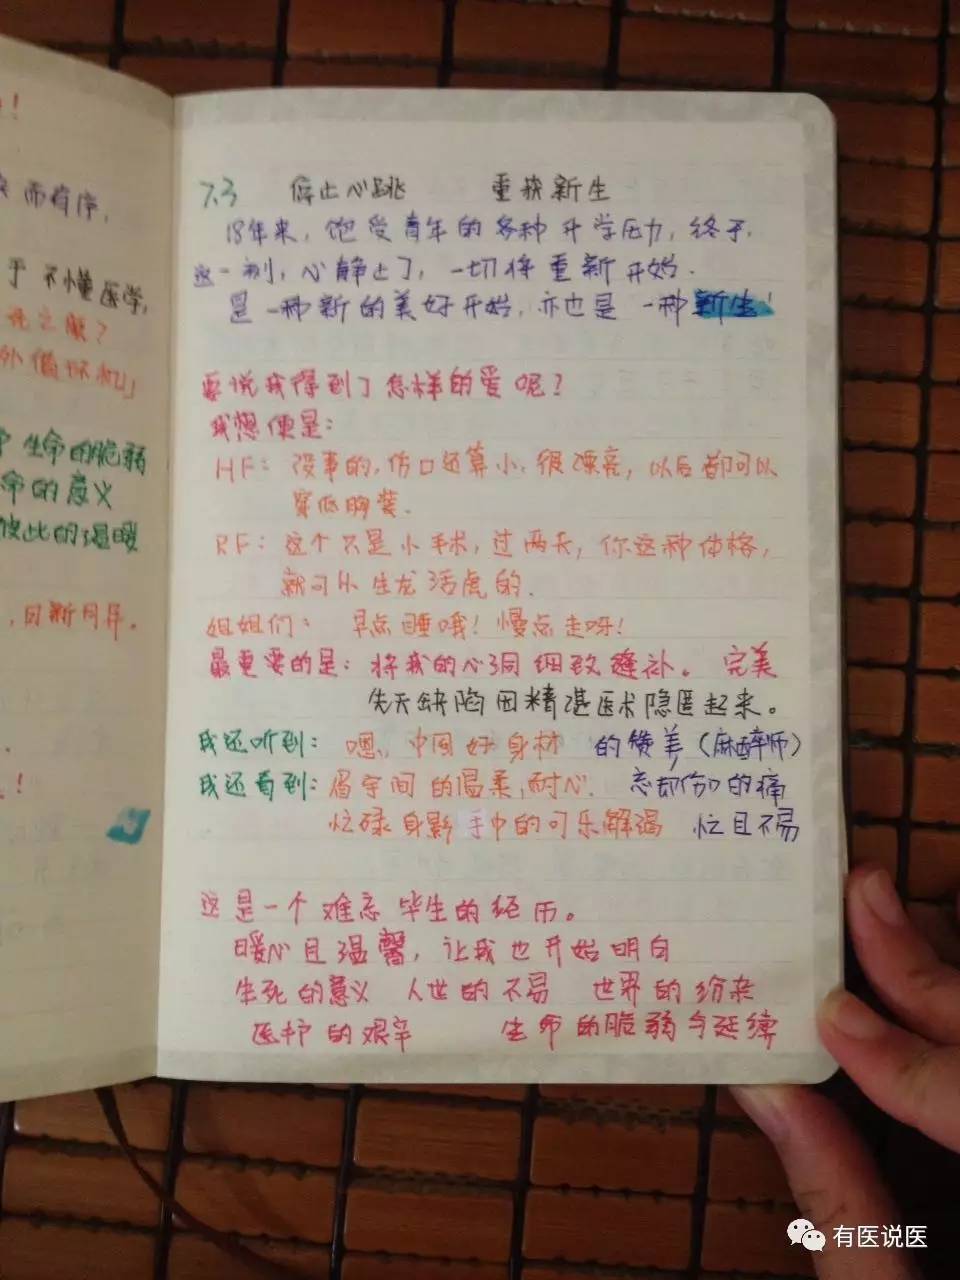 ！
而有序，
于不懂医学，
死之际？
外循环机」
生命的脆弱
命的意义
彼此的温暖
，日新月异。
！
7.3 停止心跳 重获新生
18年来，饱受青年的各种升学压力，终于，
这一刻，心静止了，一切将重新开始．
是一种新的美好开始，亦也是一种新生！
要说我得到了怎样的爱呢？
我想便是：
HF：没事的，伤口还算小，很漂亮，以后都可以
穿低胸装．
RF：这个只是小手术，过两天，你这种体格，
就可以生龙活虎的．
姐姐们：早点睡哦！慢点走呀！
最重要的是：将我的心洞细致缝补。 完美
先天缺陷因精湛医术隐匿起来。
我还听到：嗯，中国好身材 的赞美（麻醉师）
我还看到：眉宇间的温柔，耐心． 忘却伤口的痛
忙碌身影手中的可乐解渴 忙且不易
这是一个难忘毕生的经历。
暖心且温馨，让我也开始明白
生死的意义 人世的不易 世界的纷杂
医护的艰辛 生命的脆弱与延续
有医说医